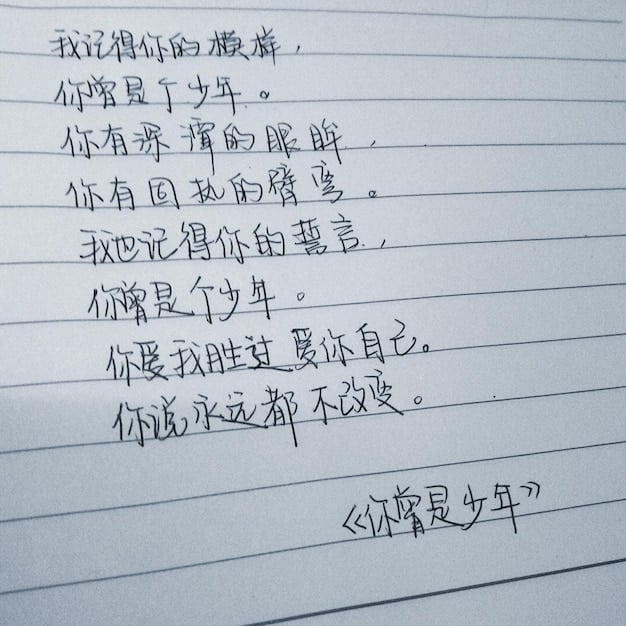 我记得你的模样，
你曾是个少年。
你有深潭的眼眸，
你有固执的臂弯。
我也记得你的誓言，
你曾是个少年。
你爱我胜过爱你自己。
你说永远都不改变。
《你曾是少年》